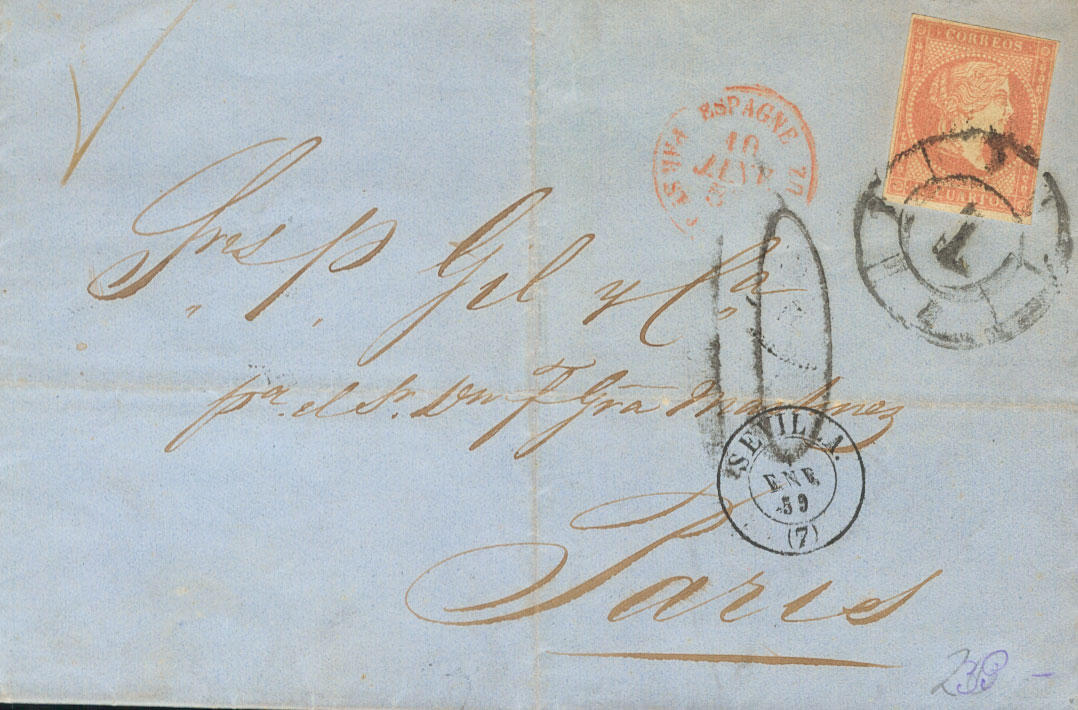 CORREOS
ESPAGNE
10
JANV
Sres P. Gil y Ca
pa. el Sr. Dn F Gra Martinez
10
7
SEVILLA.
ENE
59
(7)
Paris
238 -